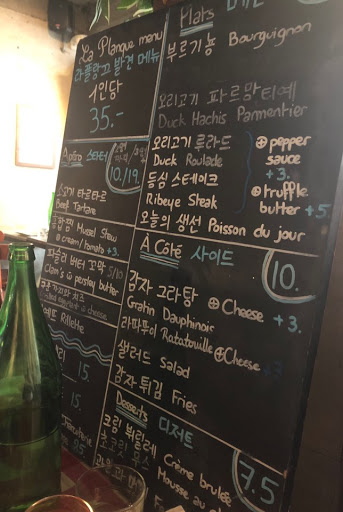 La Planque menu
라플랑끄 발견 메뉴
1인당
35.-
Apéro 스타터
10./19.
소고기 타르타르
Beef Tartare
홍합찜 Mussel Stew
⊕ cream/tomato + 3.
5/10
Clam's @ parsley butter
Rillette
15.
15.
Plats 메인
부르기뇽 Bourguignon
오리고기 파르망티에
Duck Hachis Parmentier
오리고기 룰라드
Duck Roulade
등심 스테이크
Ribeye Steak
⊕ pepper
sauce
+ 3.
⊕ truffle
butter + 5.
오늘의 생선 Poisson du jour
À Côté 사이드
10.
감자 그라탕 ⊕ Cheese
Gratin Dauphinoir + 3.
라따뚜이 Ratatouille ⊕ Cheese
+3
샐러드 Salad
감자 튀김 Fries
Desserts 디저트
7.5
크림 뷔륄레
Crème brulée
Mousse au